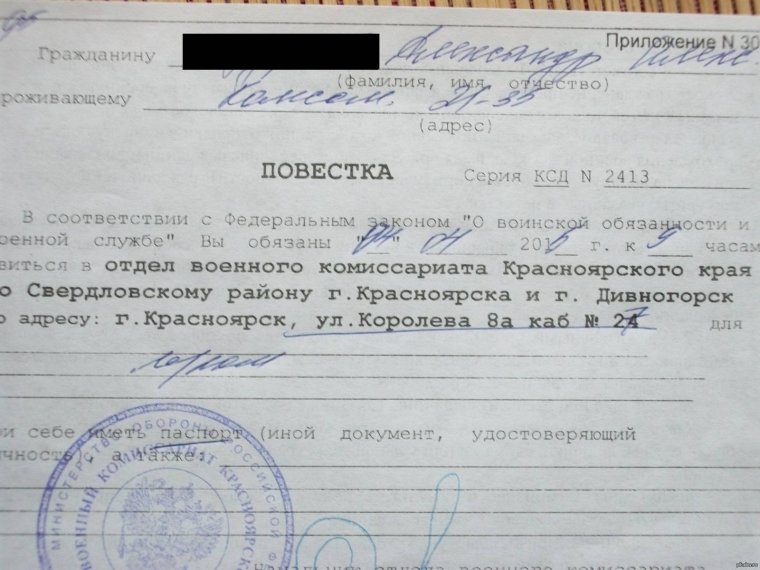 Приложение N 30
Гражданину Александр
(фамилия, имя отчество)
роживающему Комсом. 21-35
(адрес)
ПОВЕСТКА Серия КСД N 2413
В соответствии с Федеральным законом "О воинской обязанности и
оенной службе" Вы обязаны " " 201 г. к 9 часам
виться в отдел военного комиссариата Красноярского края
о Свердловскому району г.Красноярска и г. Дивногорск
о адресу: г.Красноярск, ул.Королева 8а каб № для
ри себе иметь паспорт (иной документ, удостоверяющий
ичность), а также:
МИНИСТЕРСТВО ОБОРОНЫ РОССИЙСКОЙ Ф
ВОЕННЫЙ КОМИССАРИАТ КРАСНОЯРСКО
отдела военного комиссариата